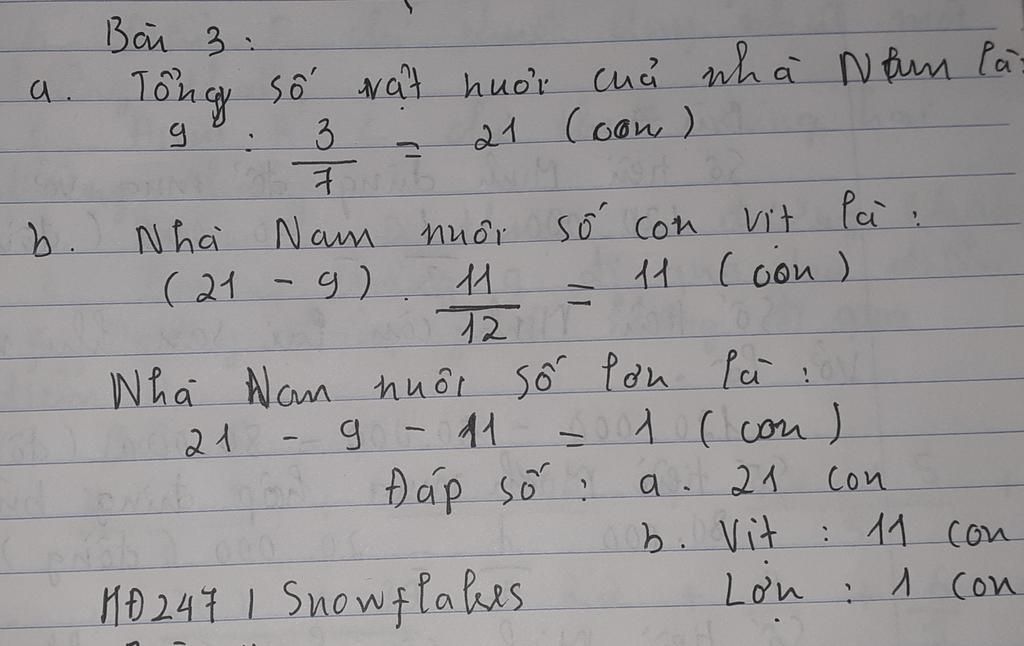 Bài 3 :
a. Tổng số vật nuôi của nhà Nam là:
9 : 3/7 = 21 (con)
b. Nhà Nam nuôi số con vịt là :
(21 - 9) . 11/12 = 11 (con)
Nhà Nam nuôi số lợn là :
21 - 9 - 11 = 1 (con)
Đáp số : a. 21 con
b. Vịt : 11 con
HĐ247 | Snowflakes Lợn : 1 con